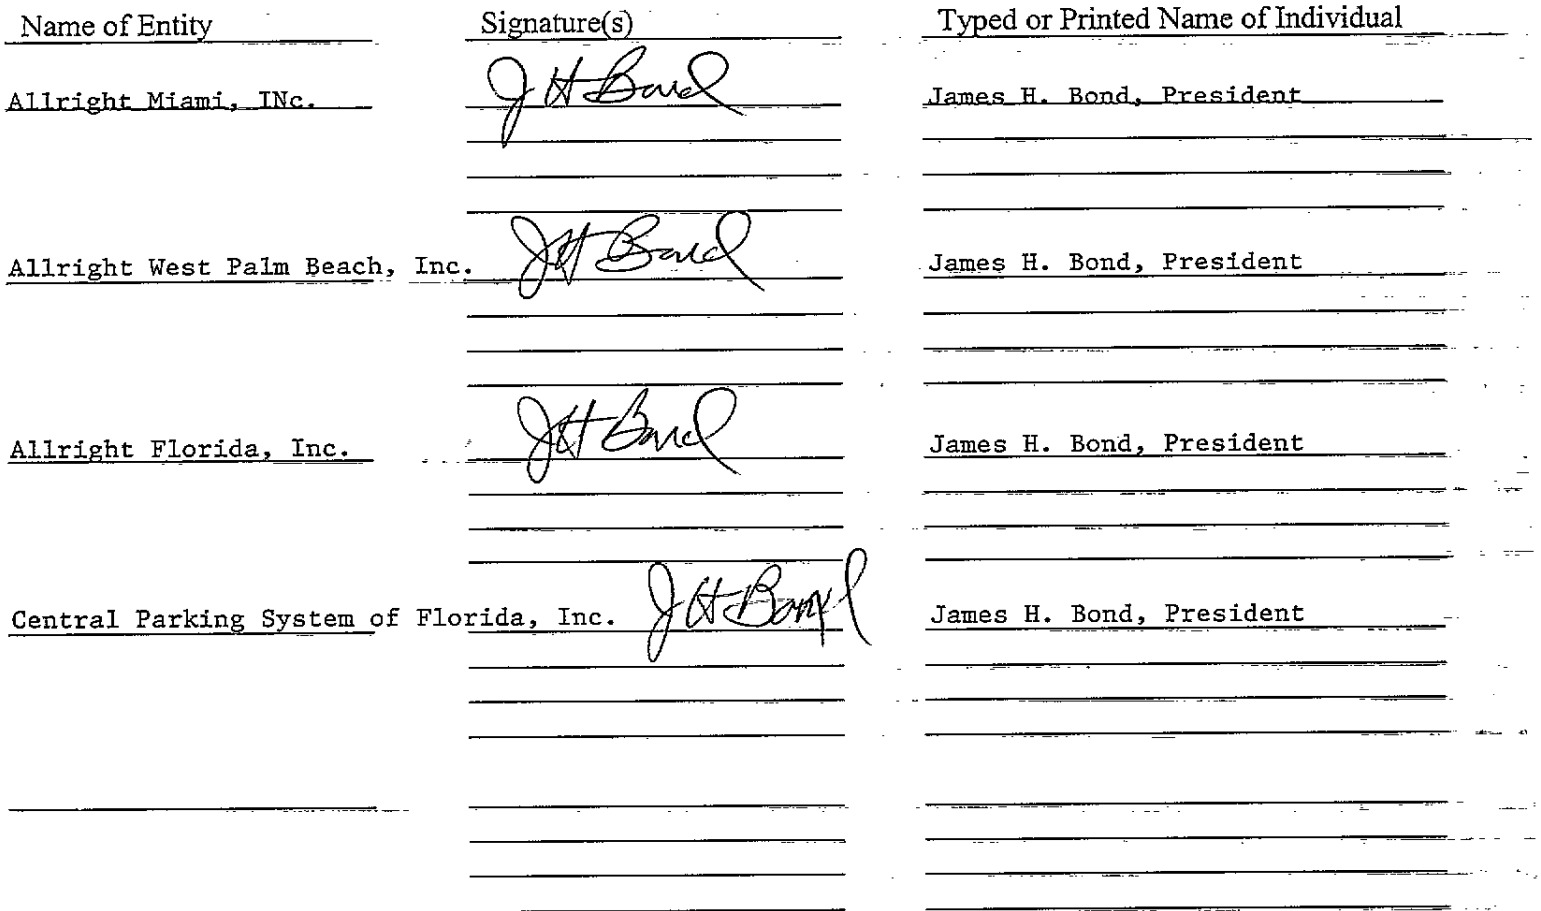 Name of Entity Signature(s) Typed or Printed Name of Individual
Allright Miami, INc. J H Bond James H. Bond, President
Allright West Palm Beach, Inc. JH Bond James H. Bond, President
Allright Florida, Inc. JH Bond James H. Bond, President
Central Parking System of Florida, Inc. JH Bond James H. Bond, President